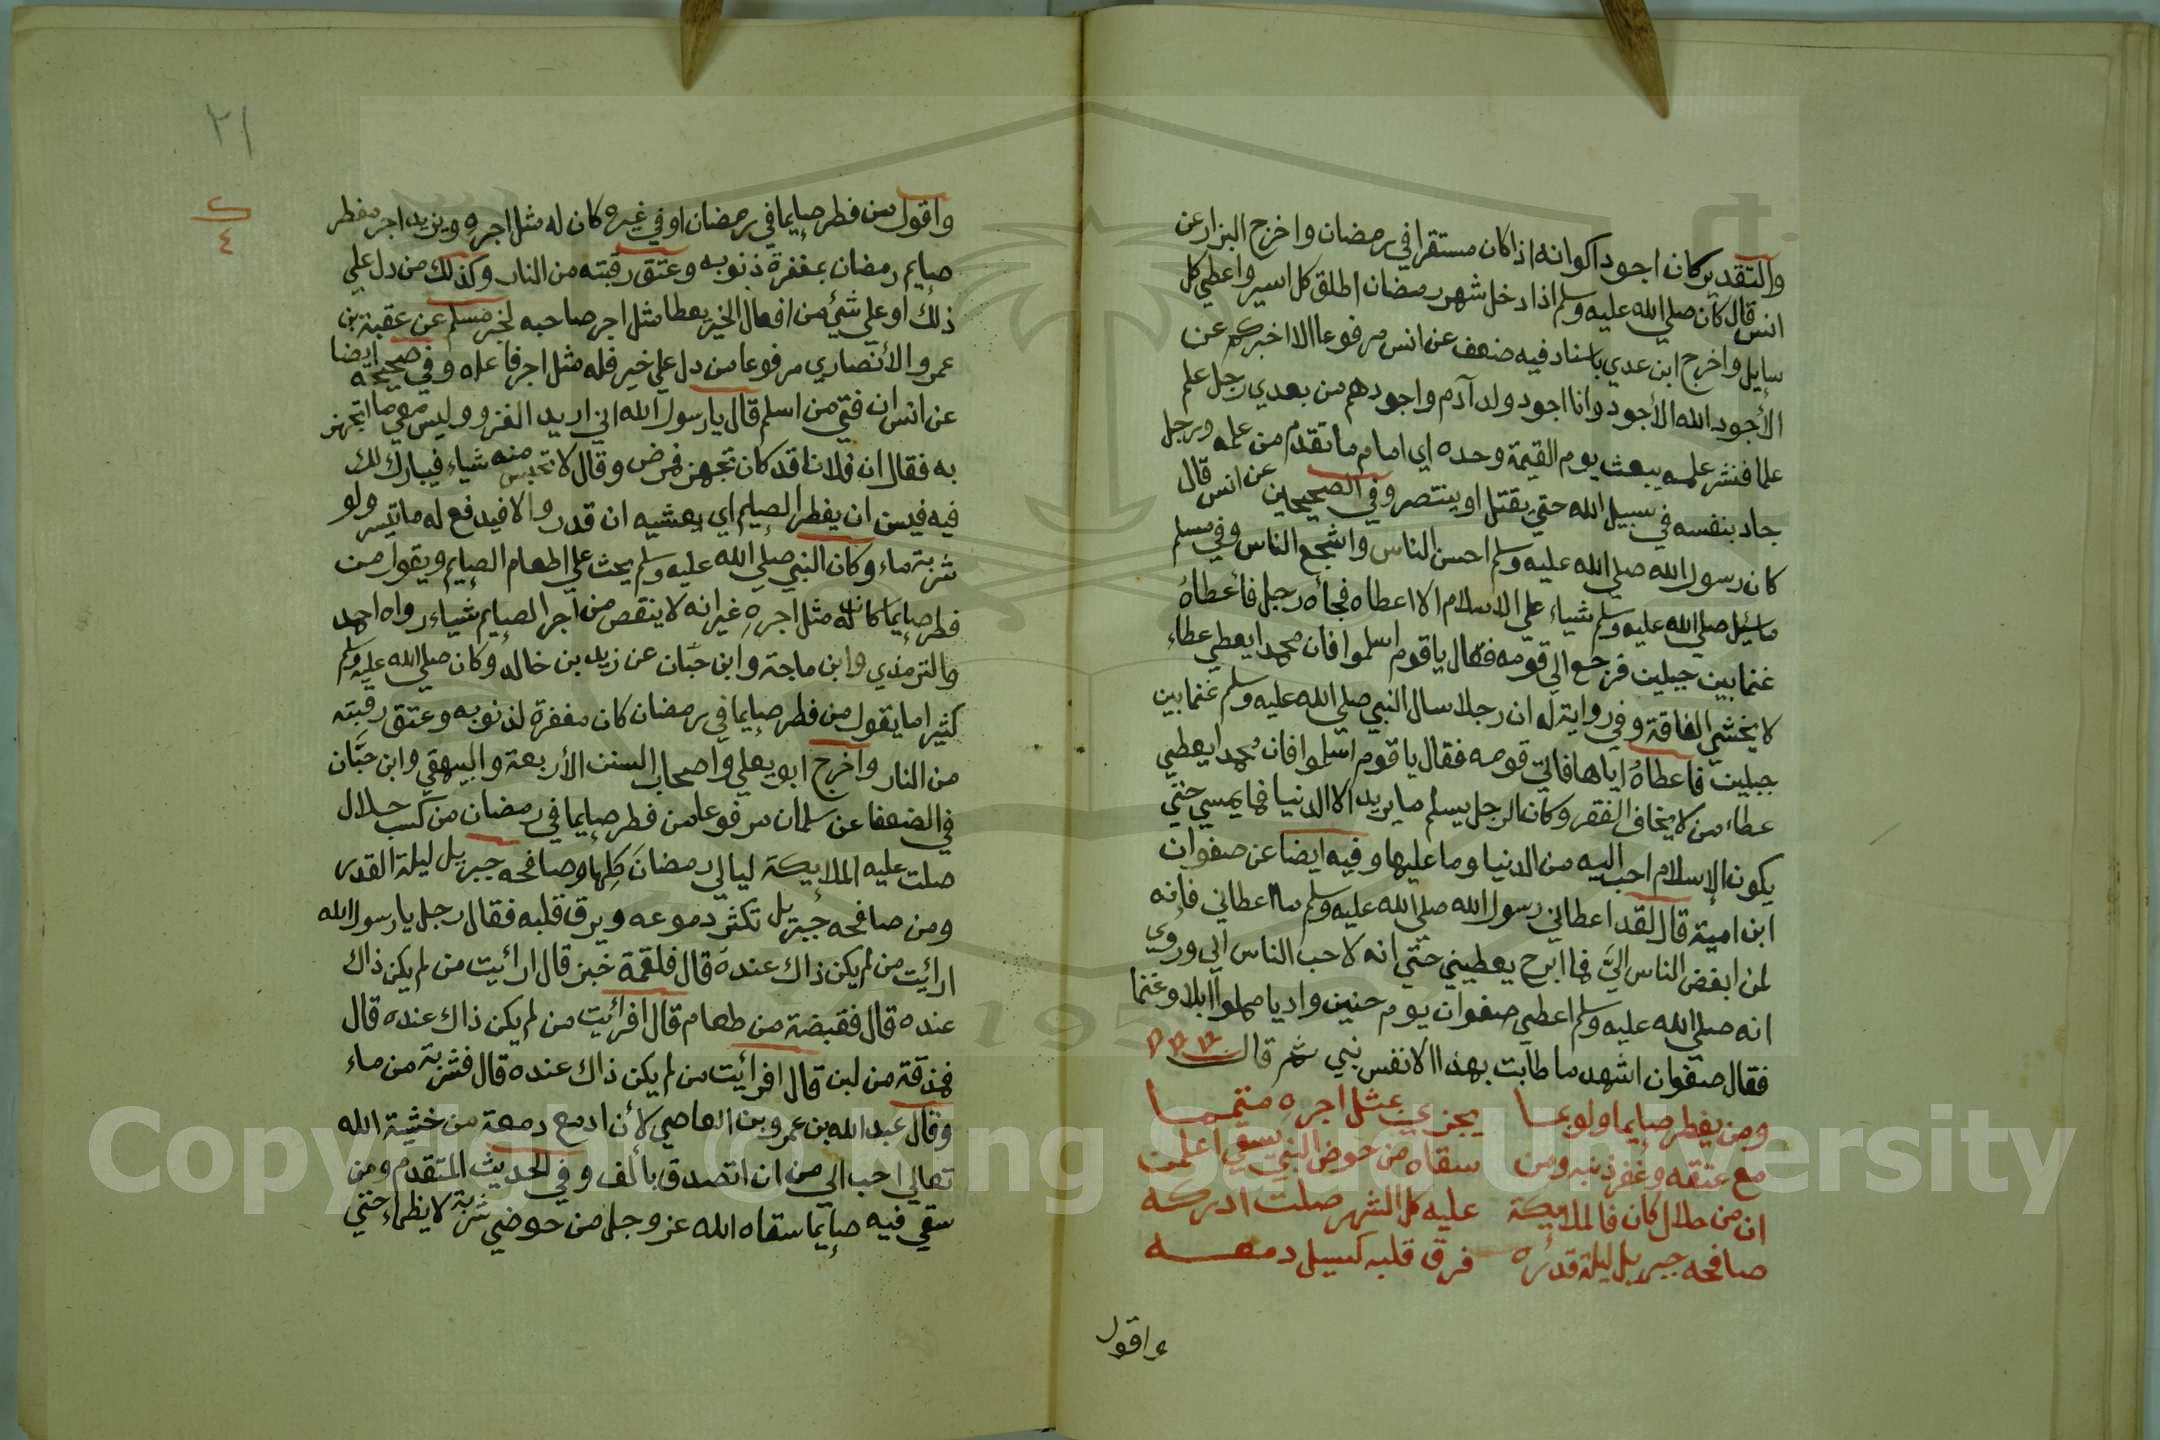 والتقدير كان اجود اكوانه اذا كان مستقرا في رمضان واخرج البزار عن
انس قال كان صلي الله عليه وسلم اذا دخل شهر رمضان اطلق كل اسير واعطي كل
سإيل واخرج ابن عدي باسناد فيه ضعف عن انس مرفوعا الا اخبركم عن
الأجود الله الأجود وانا اجود ولد آدم واجودهم من بعدي رجل علم
علما فنشر علمه يبعث يوم القيمة وحده اي امام ما تقدم من علمه ورجل
جاد بنفسه في سبيل الله حتي يقتل او ينتصر وفي الصحيحين عن انس قال
كان رسول الله صلي الله عليه وسلم احسن الناس واشجع الناس وفي مسلم
ما سئيل صلي الله عليه وسلم شياء علي الاسلام الا اعطاه فجأه رجل فأعطاهُ
غنما بين جبلين فرجع الي قومه فقال يا قوم اسلموا فان محمدا يعطي عطاء
لا يخشي الفاقة وفي رواية له ان رجلا سال النبي صلي الله عليه وسلم غنما بين
جبلين فاعطاهُ اياها فاتي قومه فقال يا قوم اسلموا فان محمدا يعطي
عطاء من لا يخاف الفقر وكان الرجل يسلم ما يريد الا الدنيا فما يمسي حتي
يكون الإسلام احب اليه من الدنيا وما عليها وفيه ايضا عن صفوان
ابن امية قال لقد اعطاني رسول الله صلي الله عليه وسلم ما اعطاني فإنه
لمن ابغض الناس اليَّ فما ابرح يعطيني حتي انه لاحب الناس الي وروي
انه صلي الله عليه وسلم اعطي صفوان يوم حنين واديا مملوا ابلا وغنما
فقال صفوان اشهد ما طابت بهذا الا نفس نبي ثم قال
ومن يفطر صايما ولو بما يجزي بمثل اجره متمما
مع عتقه وغفر ذنبه ومن سقاه من حوض النبي يسقي اعلمن
ان من حلال كان فالملايكة عليه كل الشهر صلت ادركه
صافحه جبريل ليلة قدره فرق قلبه كسيل دمعه
واقول
٢١
٤
واقول من فطر صإيما في رمضان او في غيره كان له مثل اجره ويزيد اجر مفطر
صإيم رمضان بمغفرة ذنوبه وعتق رقبته من النار وكذلك من دل علي
ذلك او علي شئ من افعال الخير يعطا مثل اجر صاحبه لخبر مسلم عن عقبة بن
عمرو الأنصاري مرفوعا من دل علي خير فله مثل اجر فاعله وفي صحيحه ايضا
عن انس ان فتي من اسلم قال يا رسول الله اني اريد الغزو وليس معي ما اتجهز
به فقال ان فلانا قد كان تجهز فمرض وقال لا تحبس منه شياء فيبارك لك
فيه فيسن ان يفطر الصإيم اي يعشيه ان قدر والا فيدفع له ما تيسر ولو
شربة ماء وكان النبي صلي الله عليه وسلم يحث علي اطعام الصإيم ويقول من
فطر صإيما كان له مثل اجرهِ غير انه لا ينقص من اجر الصإيم شياء رواه احمد
والترمذي وابن ماجة وابن حبّان عن زيد بن خالد وكان صلي الله عليه وسلم
كثيرا ما يقول من فطر صإيما في رمضان كان مغفرة لذنوبه وعتق رقبته
من النار واخرج ابو يعلي واصحاب السنن الأربعة والبيهقي وابن حبَّان
في الضعفا عن سلمان مرفوعا من فطر صإيما في رمضان من كسب حلال
صلت عليه الملايكة ليالي رمضان كلها وصافحه جبريل ليلة القدر
ومن صافحه جبريل تكثر دموعه ويرق قلبه فقال رجل يا رسول الله
ارائيت من لم يكن ذاك عنده قال فلقمة خبز قال ارائيت من لم يكن ذاك
عنده قال فقبضة من طعام قال افرائيت من لم يكن ذاك عنده قال
فمذقة من لبن قال افرائيت من لم يكن ذاك عنده قال فشربة من ماء
وقال عبد الله بن عمرو بن العاصي لأن ادمع دمعة من خشية الله
تعالي احب الي من ان اتصدق بألف وفي الحديث المتقدم ومن
سقي فيه صإيما سقاه الله عز وجل من حوضي شربة لا يظماء حتي
Copyright © King Saud University
195